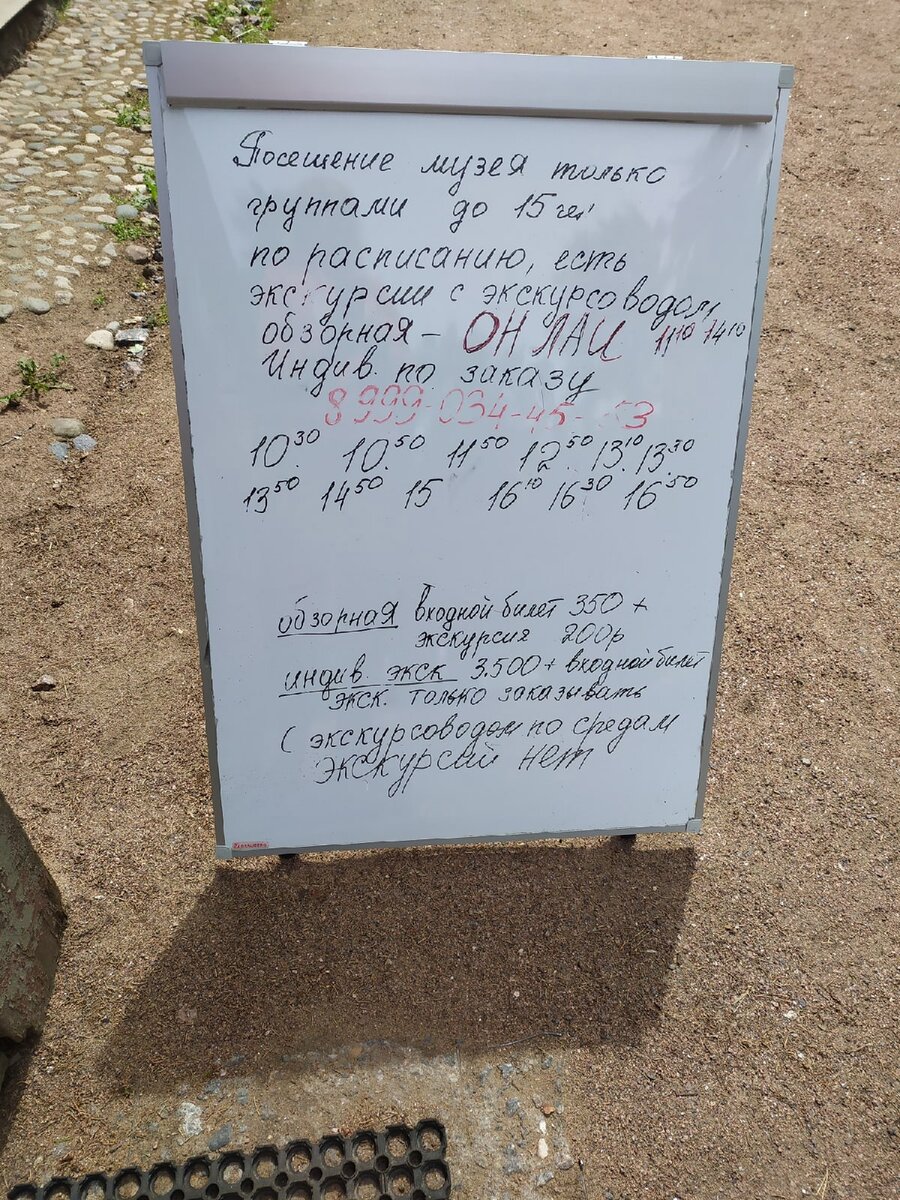 Посещение музея только
группами до 15 чел
по расписанию, есть
экскурсии с экскурсоводом
обзорная – ОНЛАЙ 11¹⁰ 14¹⁰
Индив. по заказу
8 999-034-45- 53
10³⁰ 10.⁵⁰ 11⁵⁰ 12.⁵⁰ 13.¹⁰ 13.³⁰
13⁵⁰ 14⁵⁰ 15 16¹⁰ 16³⁰ 16⁵⁰
обзорная входной билет 350 +
экскурсия 200р
индив. экск 3.500 + входной билет
экск. только заказывать
( экскурсоводом по средам
экскурсий нет